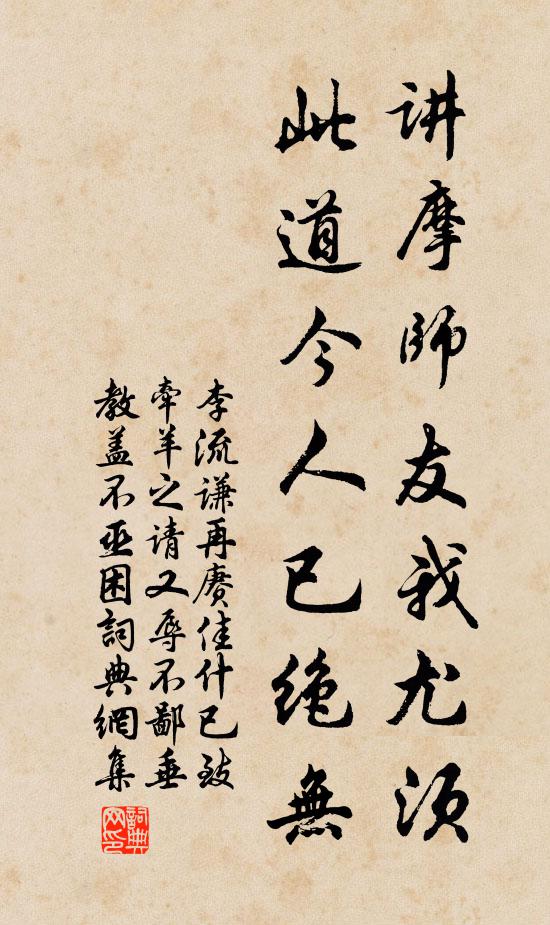 讲摩師友我尤须
此道今人已绝無
李流谦再赓佳什已致
牵羊之请又辱不鄙垂
教盖不亟困詞典網集
詞典网印